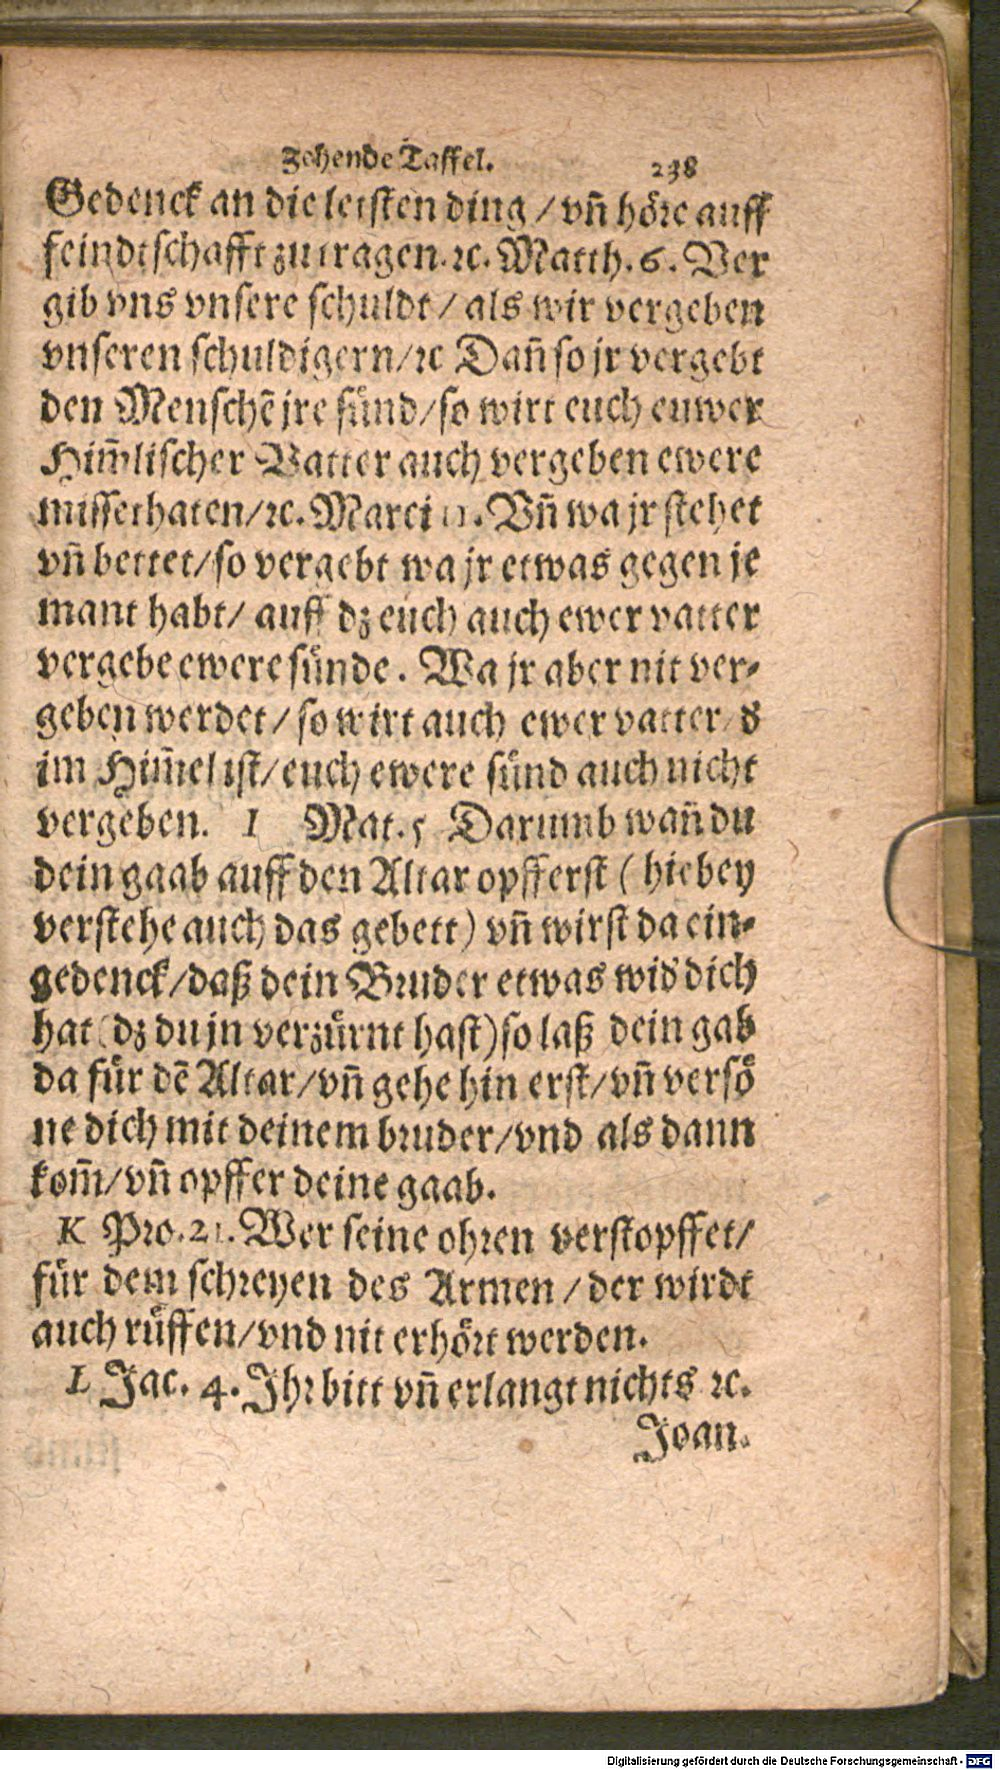 Zehende Taffel. 238
Gedenck an die letsten ding / vñ höre auff
feindtschafft zu tragen. ꝛc. Matth. 6. Ver
gib vns vnsere schuldt / als wir vergeben
vnseren schuldigern/ꝛc Dañ so jr vergebt
den Menschẽ jre sünd/so wirt euch euwer
Him̃lischer Vatter auch vergeben ewere
missethaten/ꝛc. Marci 11. Vñ wa jr stehet
vñ bettet/so vergebt wa jr etwas gegen je
mant habt/ auff dz euch auch ewer vatter
vergebe ewere sünde. Wa jr aber nit ver-
geben werdet / so wirt auch ewer vatter/ d̕
im Him̃el ist/euch ewere sünd auch nicht
vergeben. I Mat. 5 Darumb wañ du
dein gaab auff den Altar opfferst ( hiebey
verstehe auch das gebett) vñ wirst da ein-
gedenck/daß dein Bruder etwas wid̕ dich
hat (dz du jn verzürnt hast) so laß dein gab
da für dẽ Altar/vñ gehe hin erst/vñ versö
ne dich mit deinem bruder/vnd als dann
kom̃/vñ opffer deine gaab.
K Pro. 21. Wer seine ohren verstopffet/
für dem schreyen des Armen / der wirdt
auch rüffen/vnd nit erhört werden.
L Jac. 4. Ihr bitt vñ erlangt nichts ꝛc.
Joan.
Digitalisierung gefördert durch die Deutsche Forschungsgemeinschaft - DFG